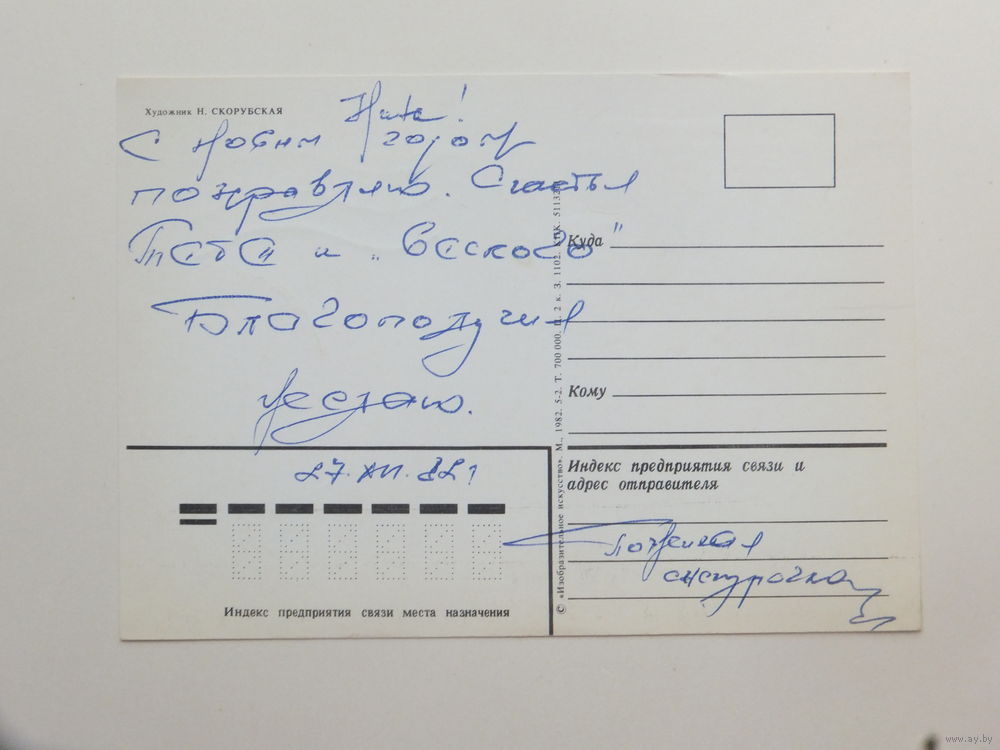 Художник Н. СКОРУБСКАЯ
С Новым годом
поздравляю. Счастья
и „
Благополучия
желаю.
27.XII.82
Куда
Кому
Индекс предприятия связи и
адрес отправителя
Индекс предприятия связи места назначения
© «Изобразительное искусство». М., 1982. 5-2. Т. 700 000. 2 к. З. 1102.
www.ay.by